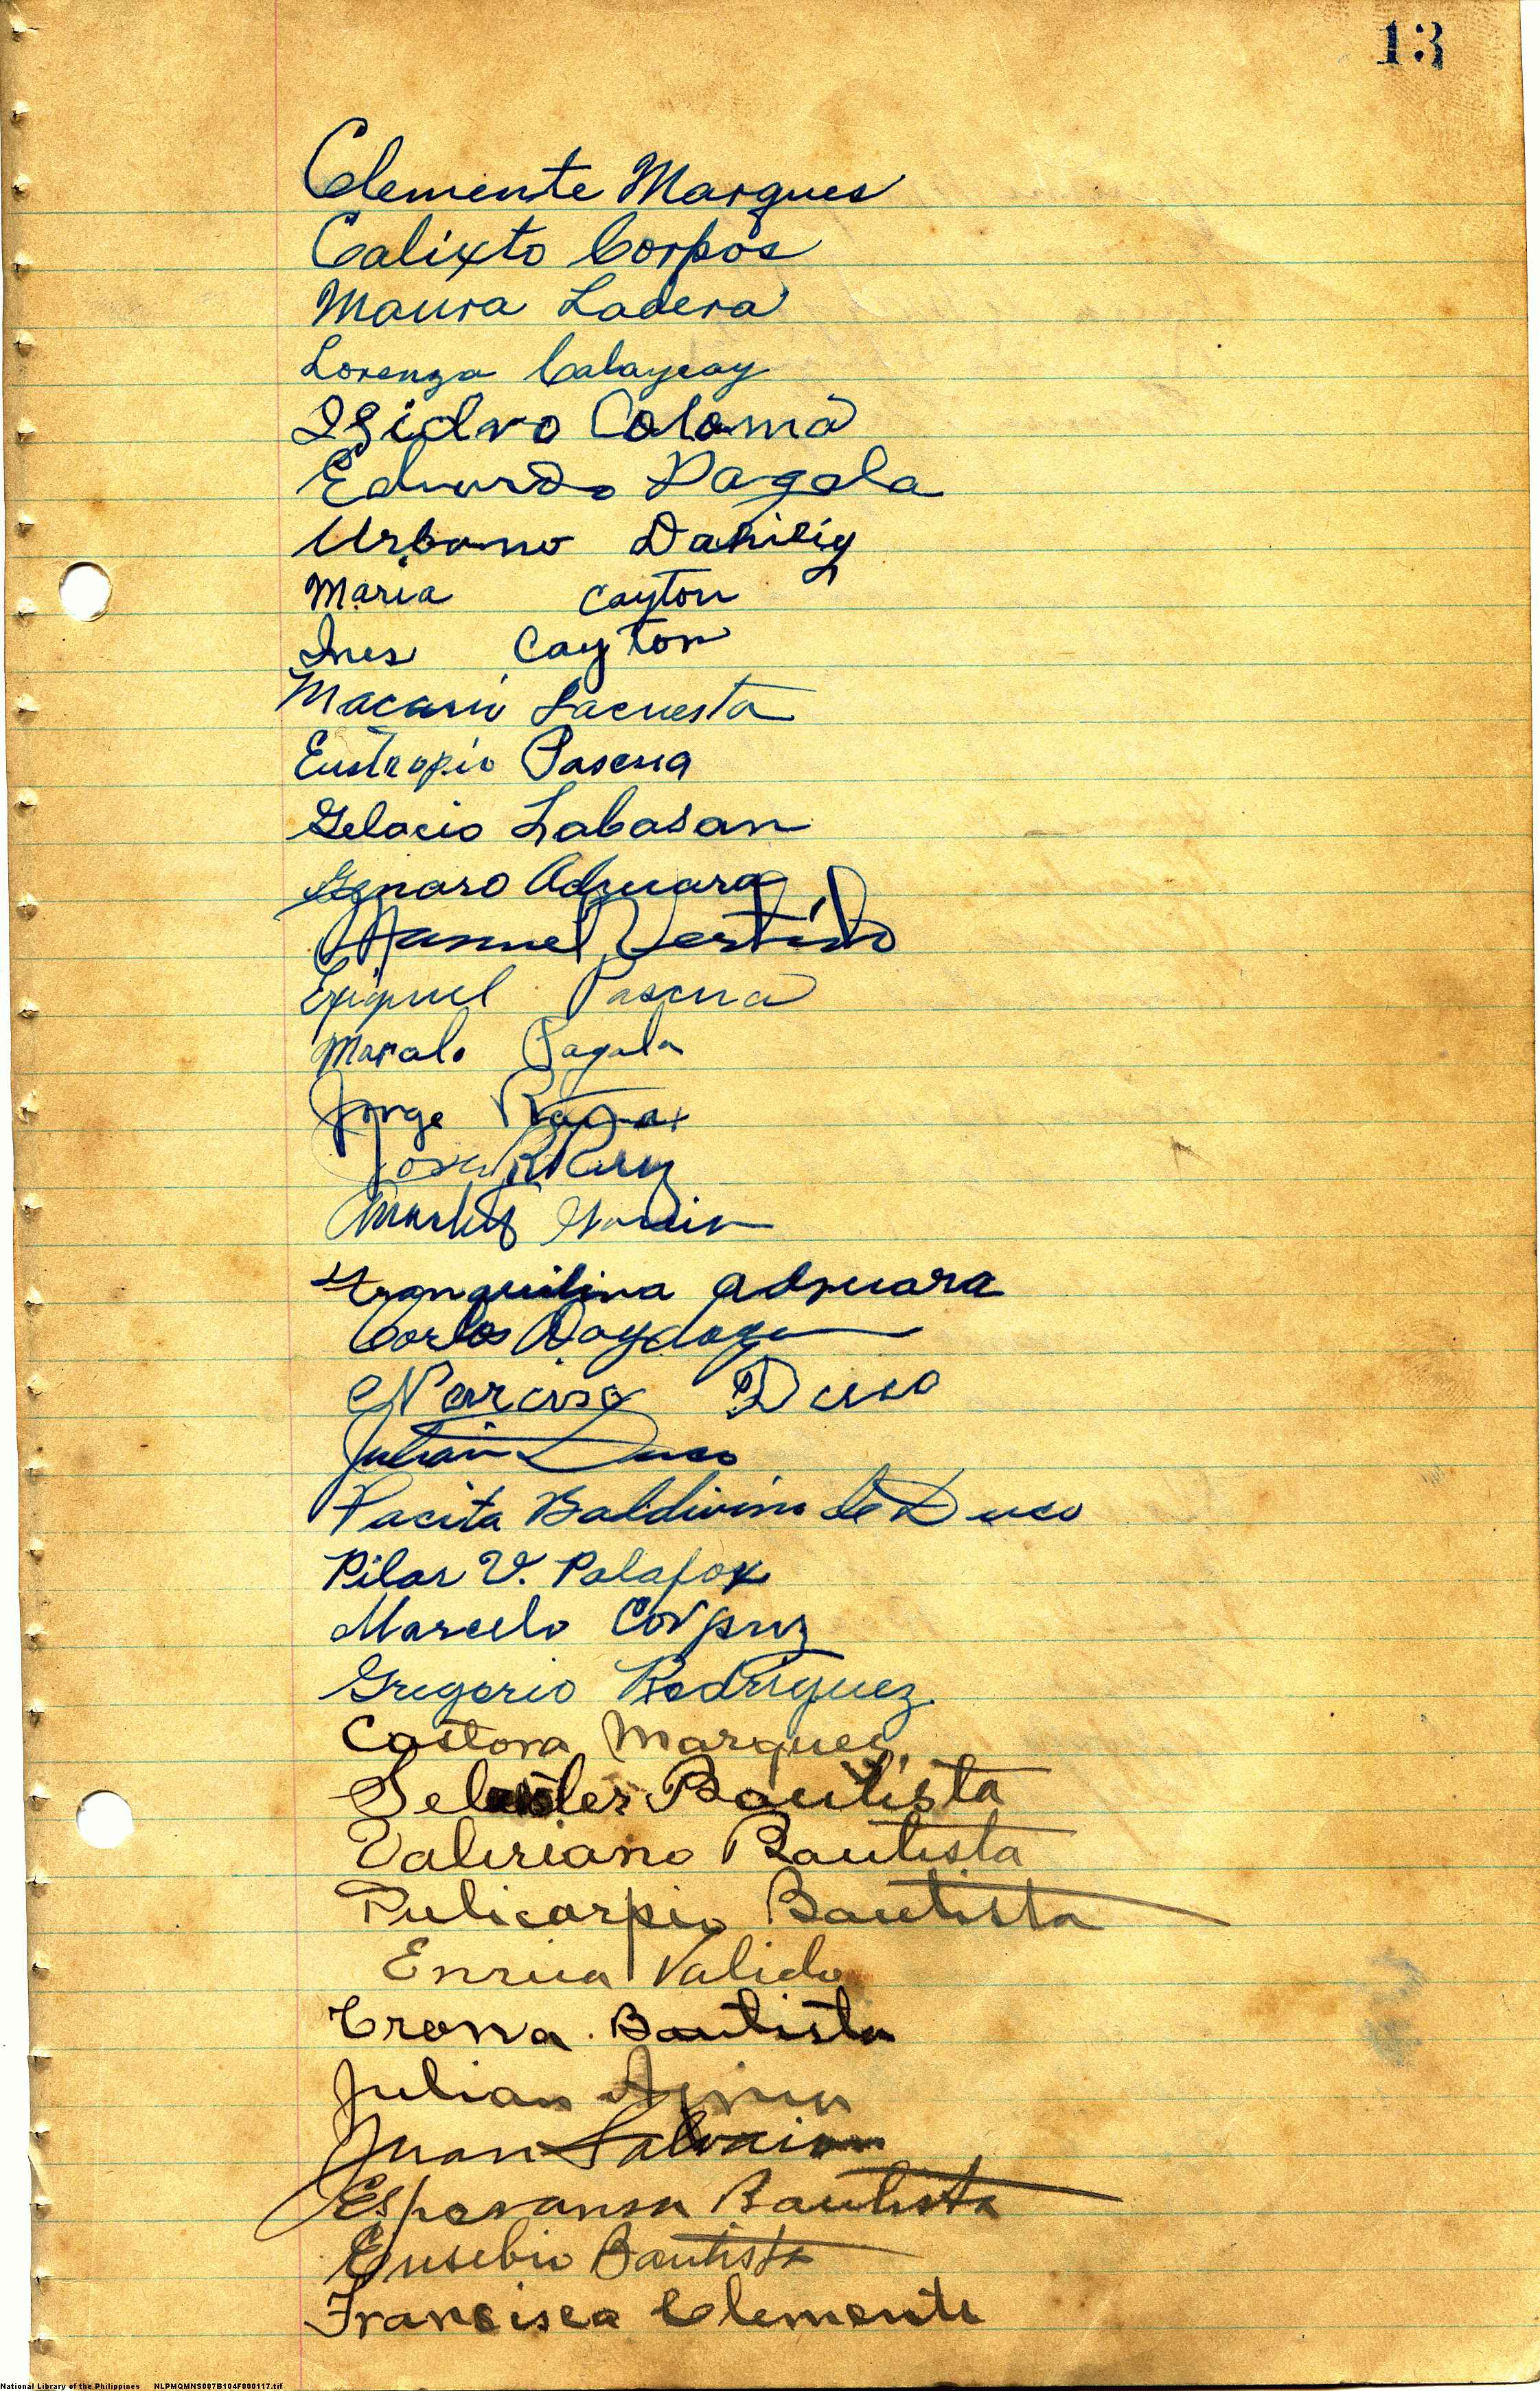 13
Clemente Marques
Calixto Corpos
Maura Ladera
Lorenza Calaycay
Isidro Coloma
Eduardo Pagala
Urbano Dahilig
Maria Cayton
Ines Cayton
Macario Lacuesta
Eustropio Pascua
Gelacio Labasan
Genaro Adsuara
Manuel Vertido
Eziquiel Pascua
Maralo Pagala
Jorge
Jose
Garcia
Tranquilina Adsuara
Carlos
Narciso Duco
Julian Duco
Pacita Baldivino de Duco
Pilar V. Palafox
Marcelo Corpuz
Gregorio Rodriguez
Castora Marquez
Bautista
Valiriano Bautista
Pulicarpio Bautista
Enrica Valido
Crona Bautista
Julian
Juan Salvacion
Esperansa Bautista
Eusebio Bautista
Francisca Clemente
National Library of the Philippines NLPMQMNS007B104F000117.tif